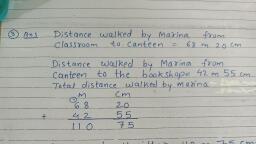 ③ Ans Distance walked by Marina from
Classroom to Canteen = 68 m 20 cm
Distance walked by Marina from
Canteen to the bookshop = 42 m 55 cm
Total distance walked by marina -
M cm
① 68 20
+ 42 55
110 75